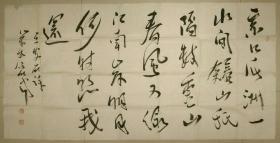 京口瓜洲一
水间钟山祇
隔数重山
春风又绿
江南岸明月
何时照我
还
王安石诗